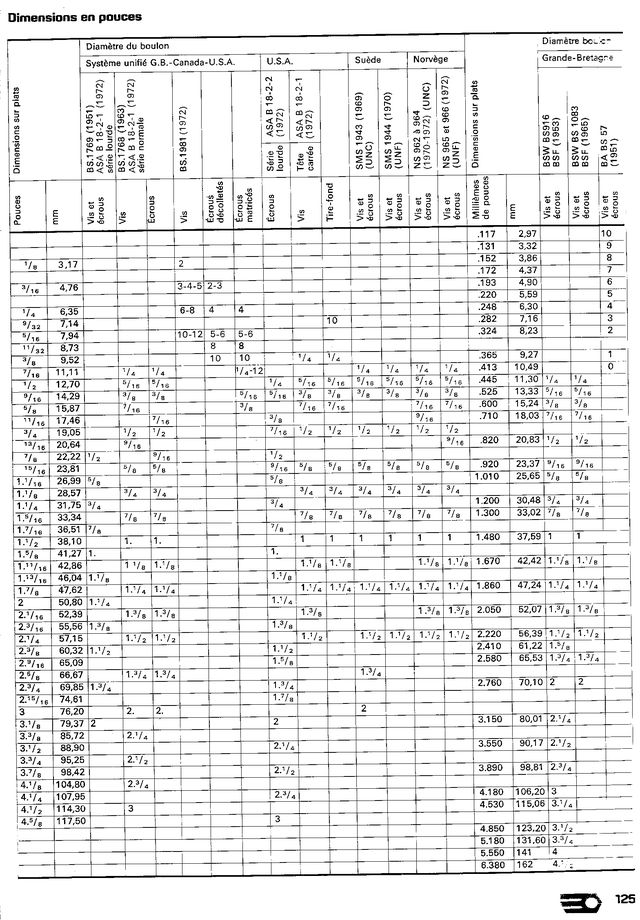 Dimensions en pouces
Diamètre du boulon
Système unifié G.B.-Canada-U.S.A.
U.S.A.
Suède
Norvège
Grande-Bretagne
Dimensions sur plats
BS.1769 (1951) ASA B 18-2-1 (1972) série lourde
BS.1768 (1963) ASA B 18-2-1 (1972) série normale
BS.1981 (1972)
Série lourde ASA B 18-2-2 (1972)
Tête carrée ASA B 18-2-1 (1972)
SMS 1943 (1969) (UNC)
SMS 1944 (1970) (UNF)
NS 962 à 964 (1970-1972) (UNC)
NS 965 et 966 (1972) (UNF)
Dimensions sur plats
BSW BS916 BSF (1953)
BSW BS 1083 BSF (1965)
BA BS 57 (1951)
Pouces mm Vis et écrous Vis Écrous Vis Écrous décolletés Écrous matricés Écrous Vis Tire-fond Vis et écrous Vis et écrous Vis et écrous Vis et écrous Millièmes de pouces mm Vis et écrous Vis et écrous Vis et écrous
.117 2,97 10
.131 3,32 9
1/8 3,17 2 .152 3,86 8
.172 4,37 7
3/16 4,76 3-4-5 2-3 .193 4,90 6
.220 5,59 5
1/4 6,35 6-8 4 4 .248 6,30 4
9/32 7,14 10 .282 7,16 3
5/16 7,94 10-12 5-6 5-6 .324 8,23 2
11/32 8,73 8 8
3/8 9,52 10 10 1/4 1/4 .365 9,27 1
7/16 11,11 1/4 1/4 1/4-12 1/4 1/4 1/4 1/4 .413 10,49 0
1/2 12,70 5/16 5/16 1/4 5/16 5/16 5/16 5/16 5/16 5/16 .445 11,30 1/4 1/4
9/16 14,29 3/8 3/8 5/16 5/16 3/8 3/8 3/8 3/8 3/8 3/8 .525 13,33 5/16 5/16
5/8 15,87 7/16 3/8 7/16 7/16 7/16 7/16 .600 15,24 3/8 3/8
11/16 17,46 7/16 3/8 9/16 .710 18,03 7/16 7/16
3/4 19,05 1/2 1/2 7/16 1/2 1/2 1/2 1/2 1/2 1/2
13/16 20,64 9/16 9/16 .820 20,83 1/2 1/2
7/8 22,22 1/2 9/16 1/2
15/16 23,81 5/8 5/8 9/16 5/8 5/8 5/8 5/8 5/8 5/8 .920 23,37 9/16 9/16
1.1/16 26,99 5/8 5/8 1.010 25,65 5/8 5/8
1.1/8 28,57 3/4 3/4 3/4 3/4 3/4 3/4 3/4 3/4
1.1/4 31,75 3/4 3/4 1.200 30,48 3/4 3/4
1.5/16 33,34 7/8 7/8 7/8 7/8 7/8 7/8 7/8 7/8 1.300 33,02 7/8 7/8
1.7/16 36,51 7/8 7/8
1.1/2 38,10 1. 1. 1 1 1 1 1 1 1.480 37,59 1 1
1.5/8 41,27 1. 1.
1.11/16 42,86 1 1/8 1.1/8 1.1/8 1.1/8 1.1/8 1.1/8 1.670 42,42 1.1/8 1.1/8
1.13/16 46,04 1.1/8 1.1/8
1.7/8 47,62 1.1/4 1.1/4 1.1/4 1.1/4 1.1/4 1.1/4 1.1/4 1.1/4 1.860 47,24 1.1/4 1.1/4
2 50,80 1.1/4 1.1/4
2.1/16 52,39 1.3/8 1.3/8 1.3/8 1.3/8 1.3/8 2.050 52,07 1.3/8 1.3/8
2.3/16 55,56 1.3/8 1.3/8
2.1/4 57,15 1.1/2 1.1/2 1.1/2 1.1/2 1.1/2 1.1/2 1.1/2 2.220 56,39 1.1/2 1.1/2
2.3/8 60,32 1.1/2 1.1/2 2.410 61,22 1.5/8
2.9/16 65,09 1.5/8 2.580 65,53 1.3/4 1.3/4
2.5/8 66,67 1.3/4 1.3/4 1.3/4
2.3/4 69,85 1.3/4 1.3/4 2.760 70,10 2 2
2.15/16 74,61 1.7/8
3 76,20 2. 2. 2
3.1/8 79,37 2 2 3.150 80,01 2.1/4
3.3/8 85,72 2.1/4
3.1/2 88,90 2.1/4 3.550 90,17 2.1/2
3.3/4 95,25 2.1/2
3.7/8 98,42 2.1/2 3.890 98,81 2.3/4
4.1/8 104,80 2.3/4
4.1/4 107,95 2.3/4 4.180 106,20 3
4.1/2 114,30 3 4.530 115,06 3.1/4
4.5/8 117,50 3
4.850 123,20 3.1/2
5.180 131,60 3.3/4
5.550 141 4
6.380 162
125